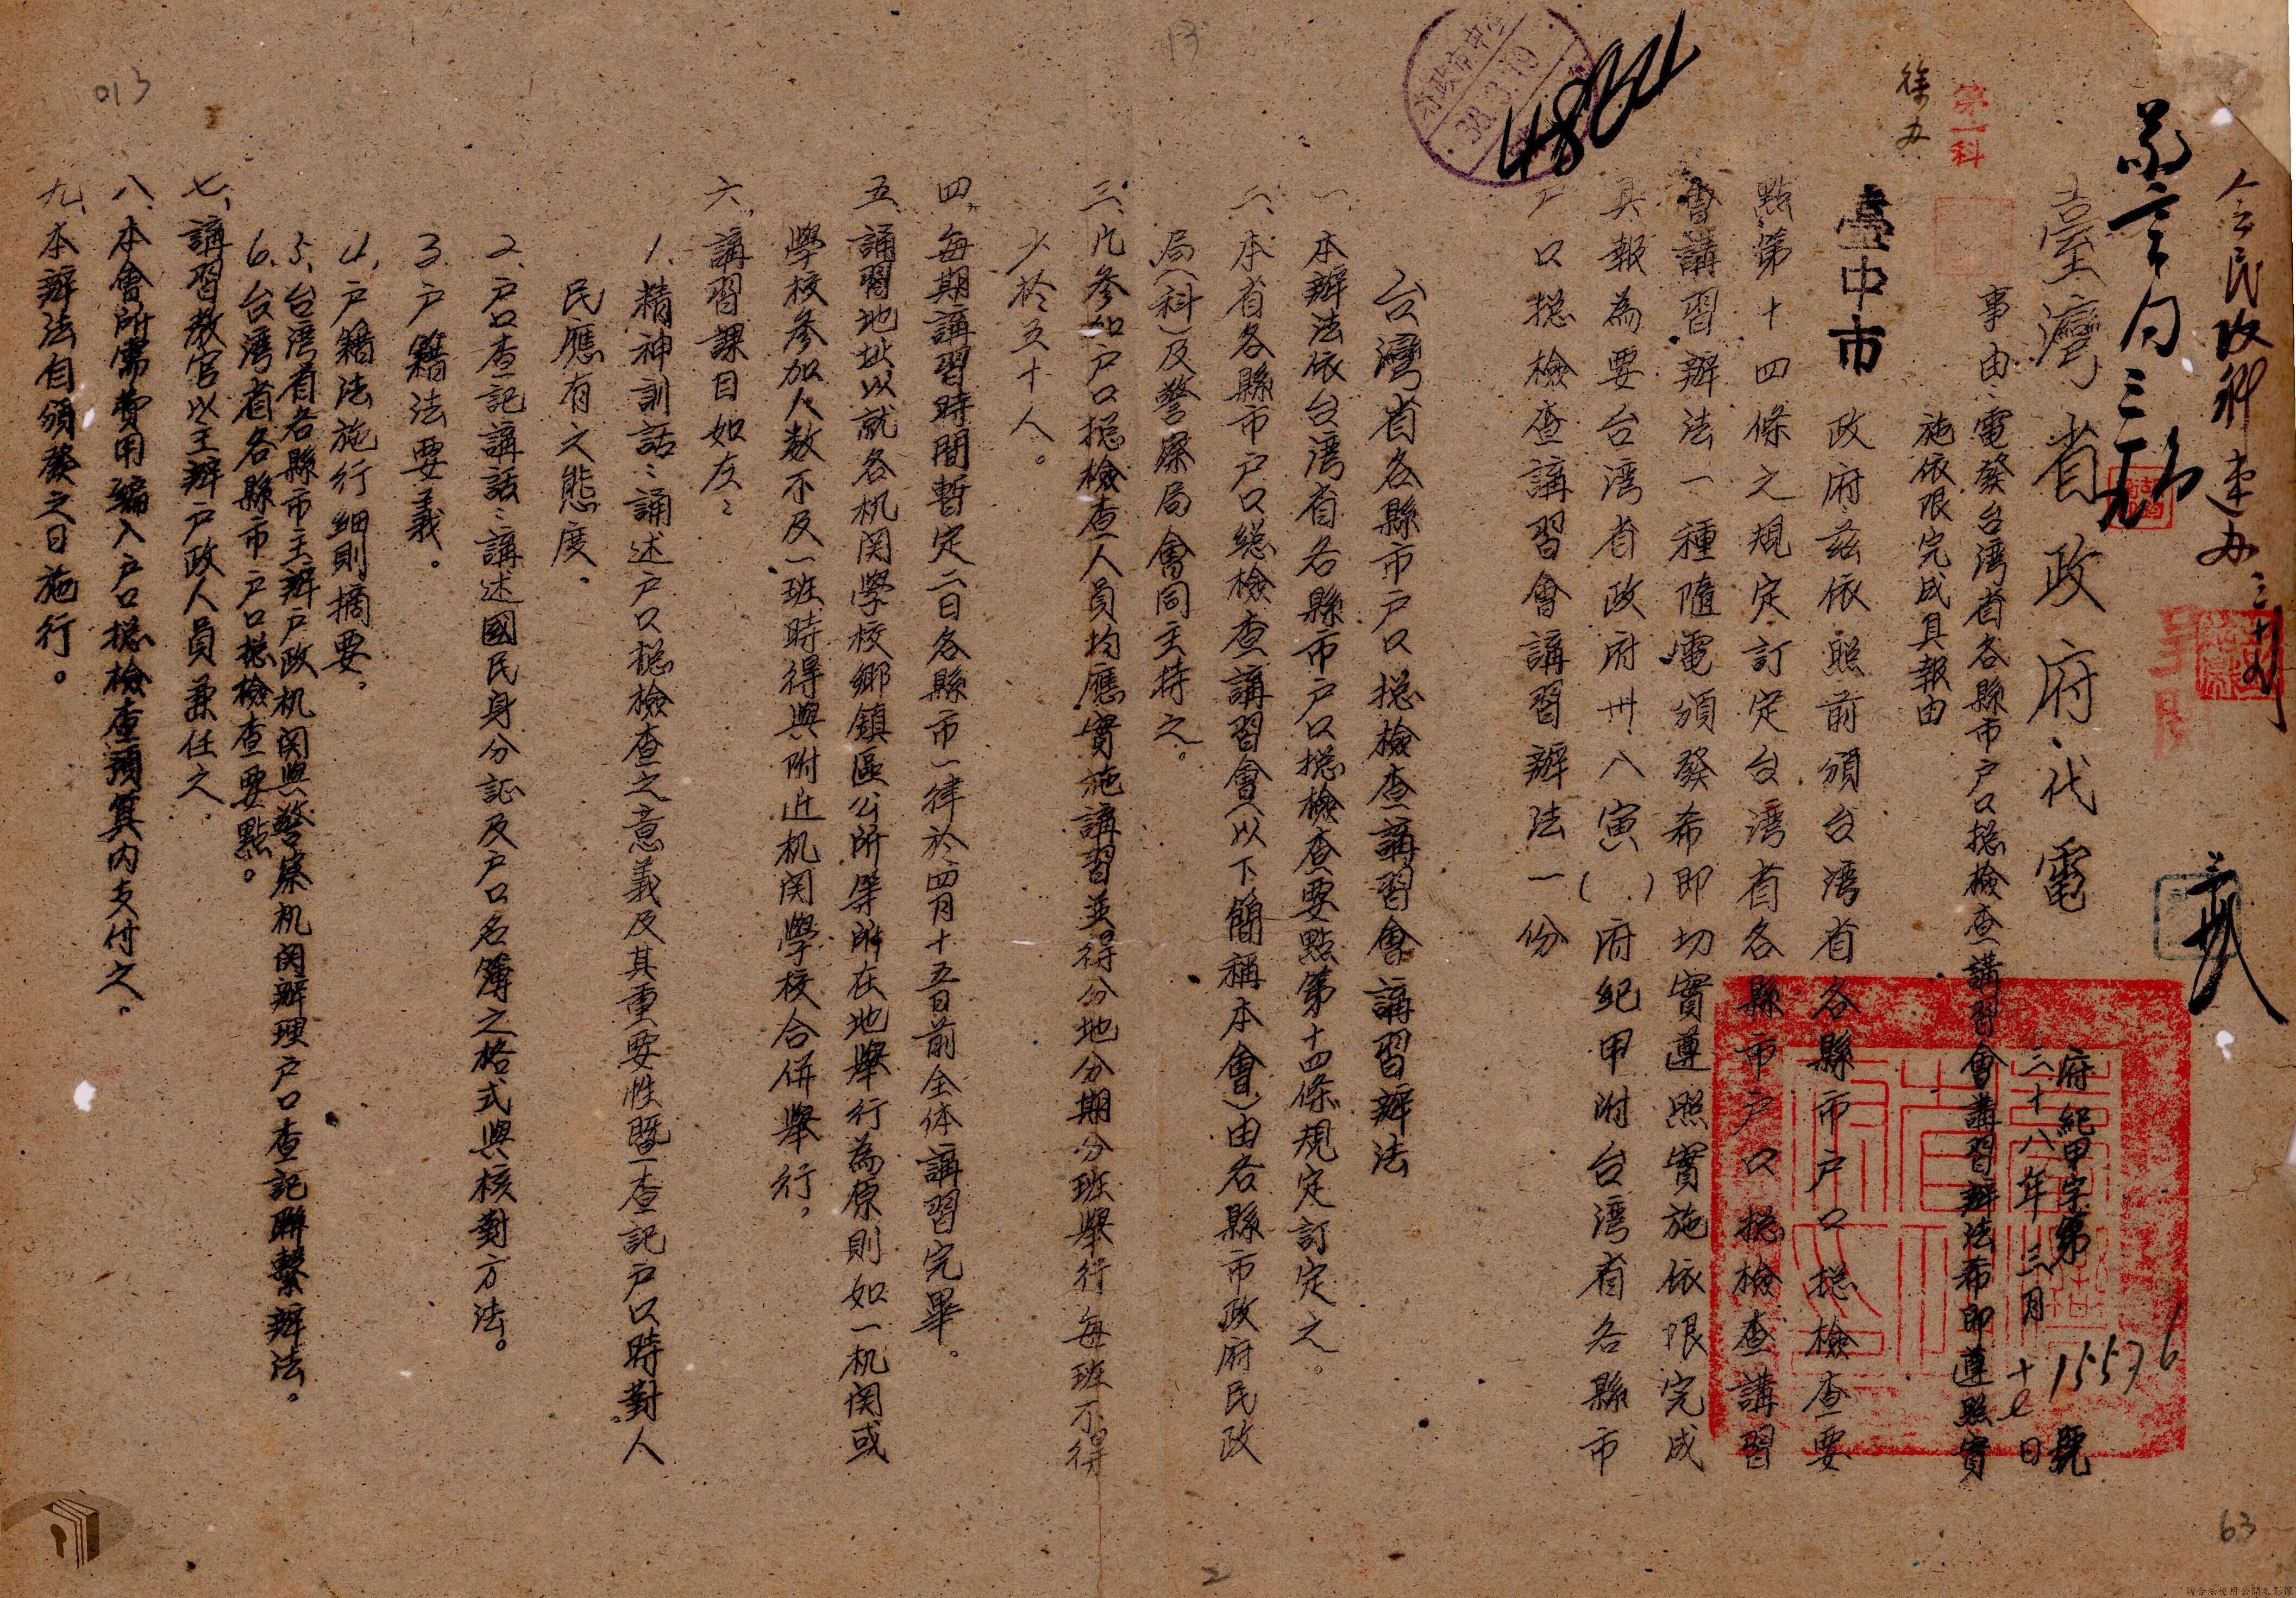 臺灣省政府代電
府紀甲字第15576號
三十八年三月十七日
事由：電發台湾省各縣市户口揔檢查講習會講習辦法希即遵照實
施依限完成具報由
臺中市政府兹依照前頒台湾省各縣市户口揔檢查要
點第十四條之規定訂定台湾省各縣市户口揔檢查講習
會講習辦法一種隨電頒發希即切實遵照實施依限完成
具報為要台湾省政府卅八寅( )府紀甲附台湾省各縣市
户口揔檢查講習會講習辦法一份
台灣省各縣市户口揔檢查講習會講習辦法
一、本辦法依台湾省各縣市户口揔檢查要點第十四條規定訂定之。
二、本省各縣市户口總檢查講習會（以下簡稱本會）由各縣市政府民政
局（科）及警察局會同主持之。
三、凡参加户口揔檢查人員均應實施講習並得分地分期分班舉行每班不得
少於五十人。
四、每期講習時間暫定二日各縣市一律於四月十五日前全体講習完畢。
五、誦習地址以就各机関學校鄉鎮區公所等所在地舉行為原則如一机関或
學校参加人数不及一班時得與附近机関學校合併舉行，
六、講習課目如左：
1.精神訓話：誦述户口揔檢查之意義及其重要性暨查記户口時對人
民應有之態度。
2.户口查記講話：講述國民身分証及户口名簿之格式與核對方法。
3.户籍法要義。
4.户籍法施行細則摘要，
5.台湾省各縣市主辦户政机関與警察机関辦理户口查記聯繫辦法。
6.台湾省各縣市户口揔檢查要點。
七、講習教官以主辦户政人員兼任之.
八.本會所需費用編入户口揔檢查預算内支付之。
九、本辦法自頒發之日施行。
第一科
徐办
38.3.19
013
13
63
2
請合法使用公開之影像